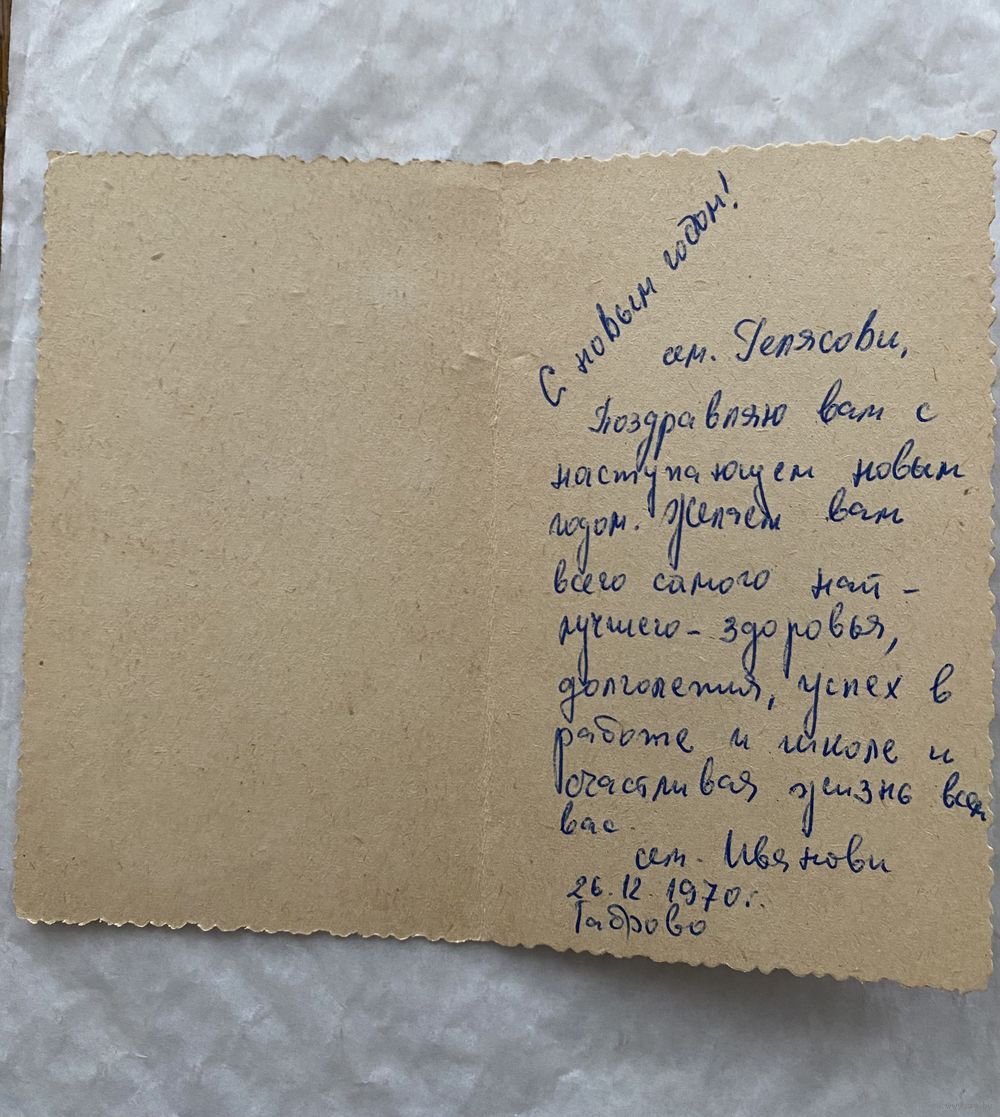 С новым годом!
сем. Гелясови,
Поздравляю вам с
наступающем новым
годом. Желаем вам
всего самого най-
лучшего - здоровья,
долголетия, успех в
работе и школе и
счастливая жизнь всем
вас.
сем. Ивянови
26.12.1970 г.
Габрово